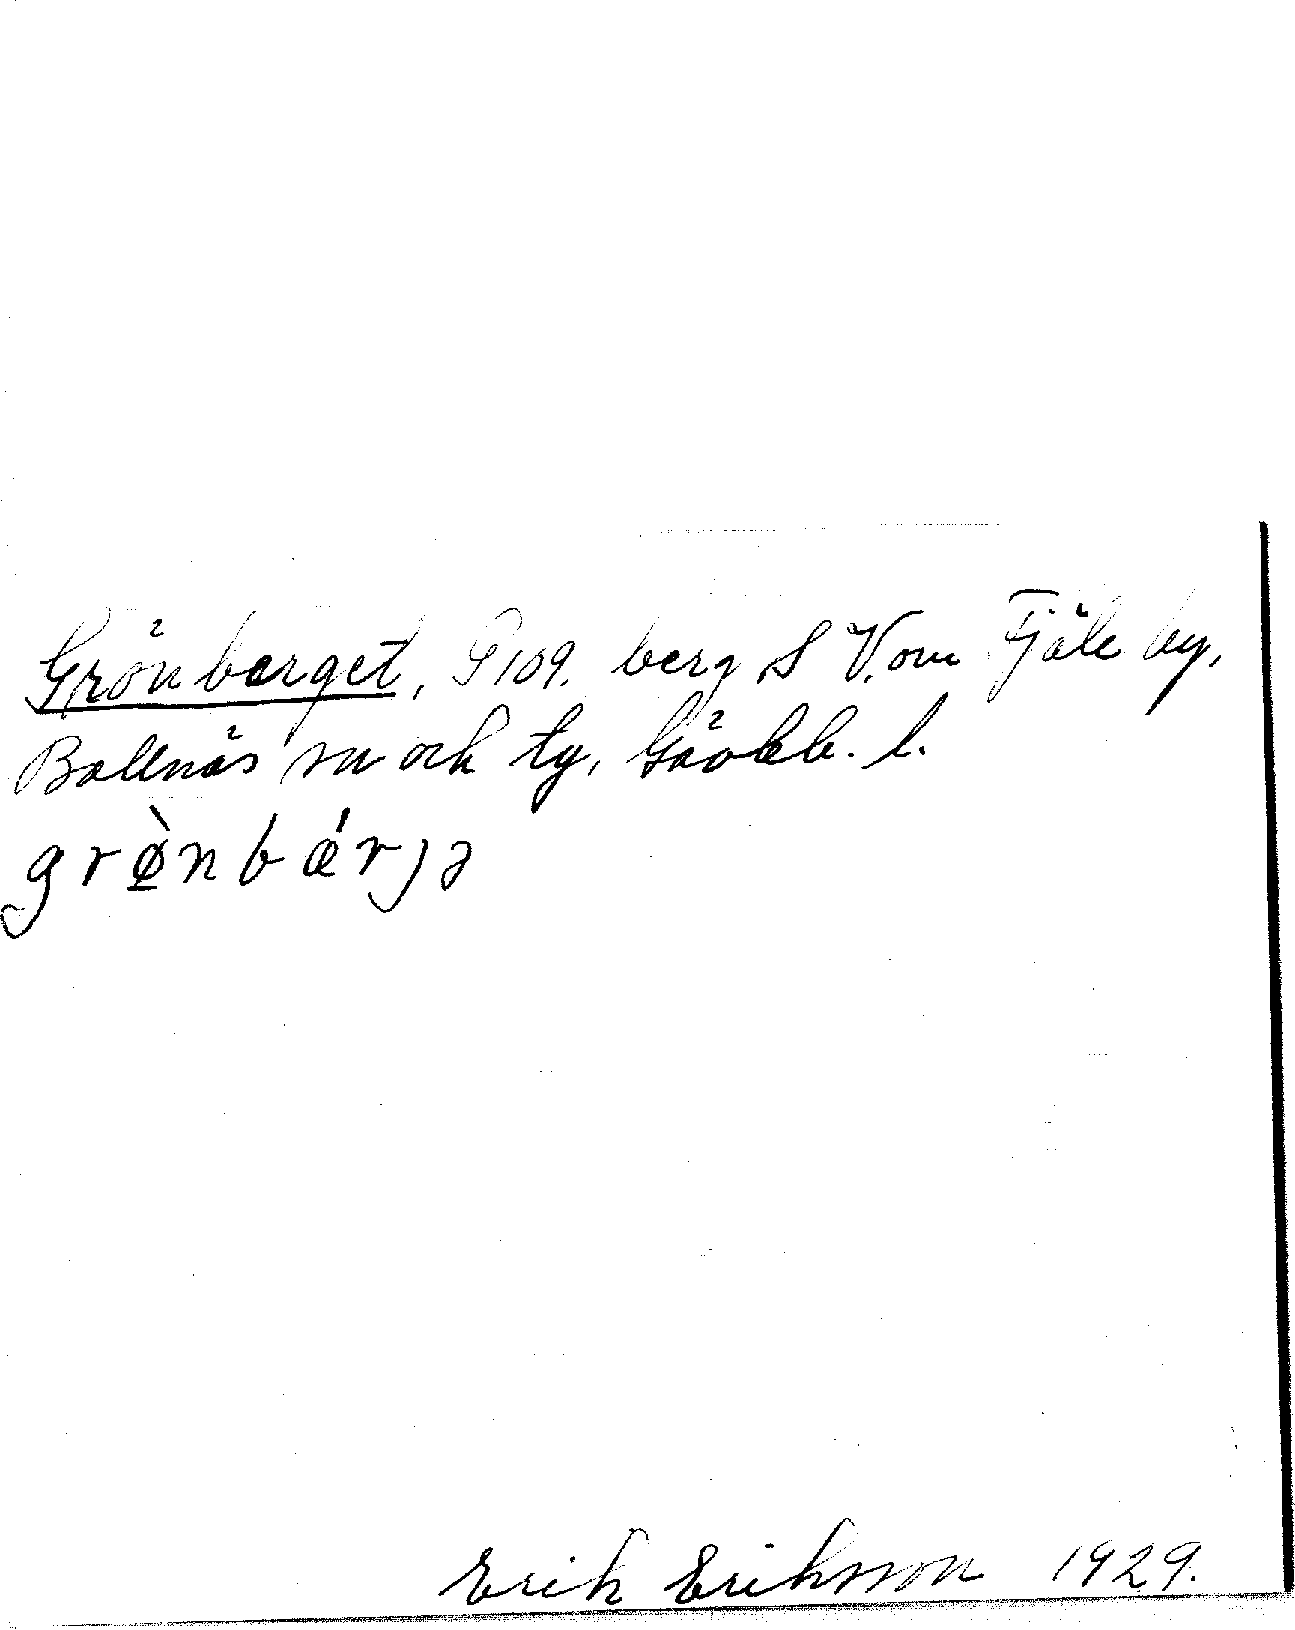 Grönberget, S 109. berg S V. om Fjäle by,
Bollnäs sn och tg, Gävleb. l.
grø̀nbǽrjə
Erik Eriksson 1929.